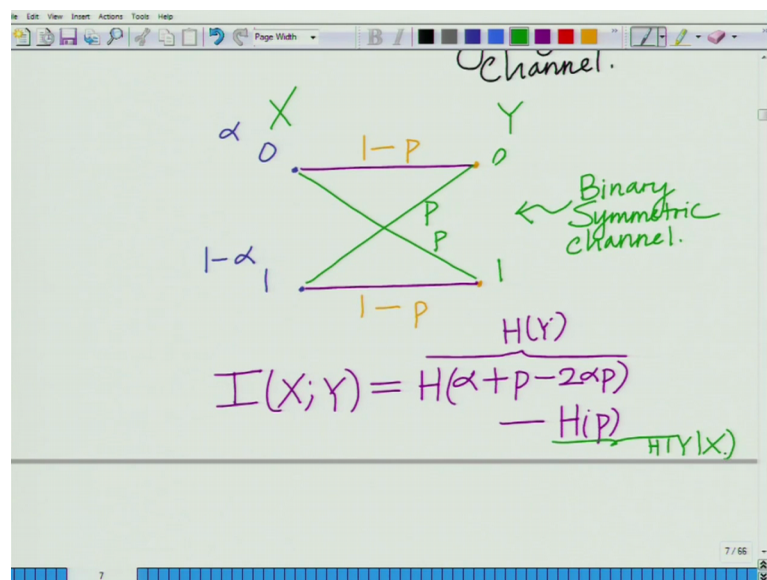 File Edit View Insert Actions Tools Help
Page Width
B I
Channel.
X Y
α 0 1-p 0
p
p
Binary
Symmetric
Channel.
1-α 1 1-p 1
H(Y)
I(X;Y) = H(α+p-2αp)
- H(p)
H(Y|X)
7 / 66
7